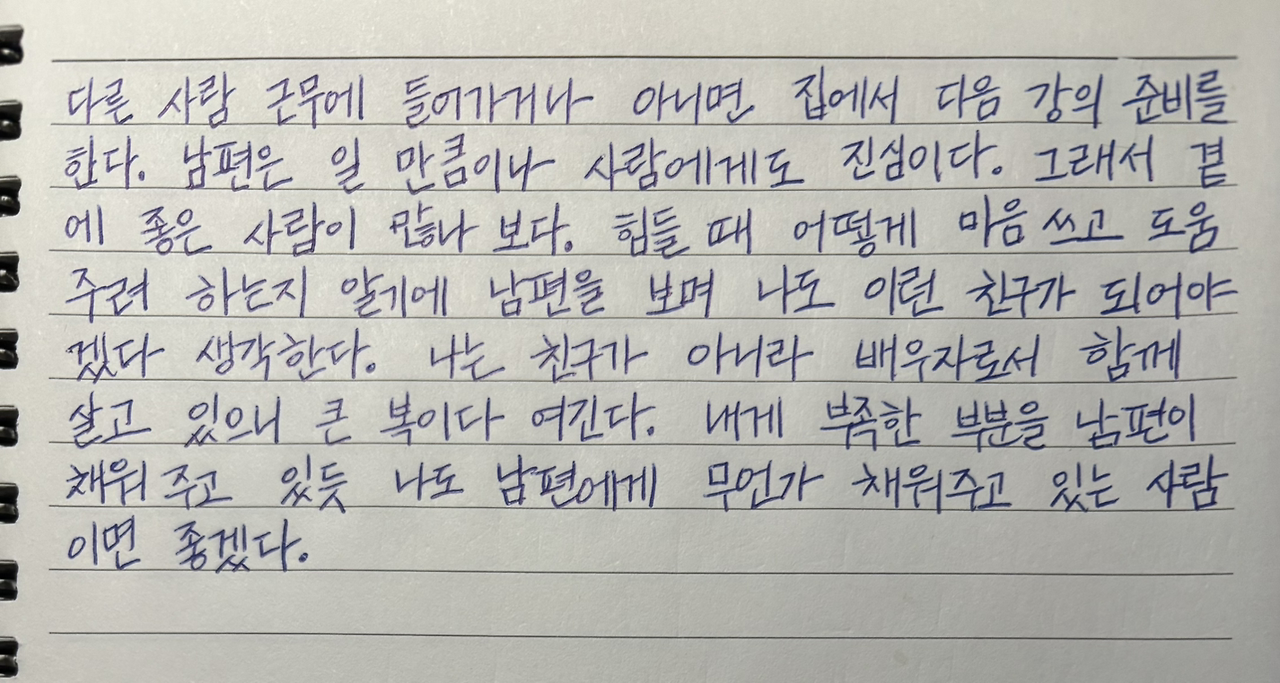 다른 사람 근무에 들어가거나 아니면 집에서 다음 강의 준비를
한다. 남편은 일 만큼이나 사람에게도 진심이다. 그래서 곁
에 좋은 사람이 많나 보다. 힘들 때 어떻게 마음 쓰고 도움
주려 하는지 알기에 남편을 보며 나도 이런 친구가 되어야
겠다 생각한다. 나는 친구가 아니라 배우자로서 함께
살고 있으니 큰 복이다 여긴다. 내게 부족한 부분을 남편이
채워주고 있듯 나도 남편에게 무언가 채워주고 있는 사람
이면 좋겠다.